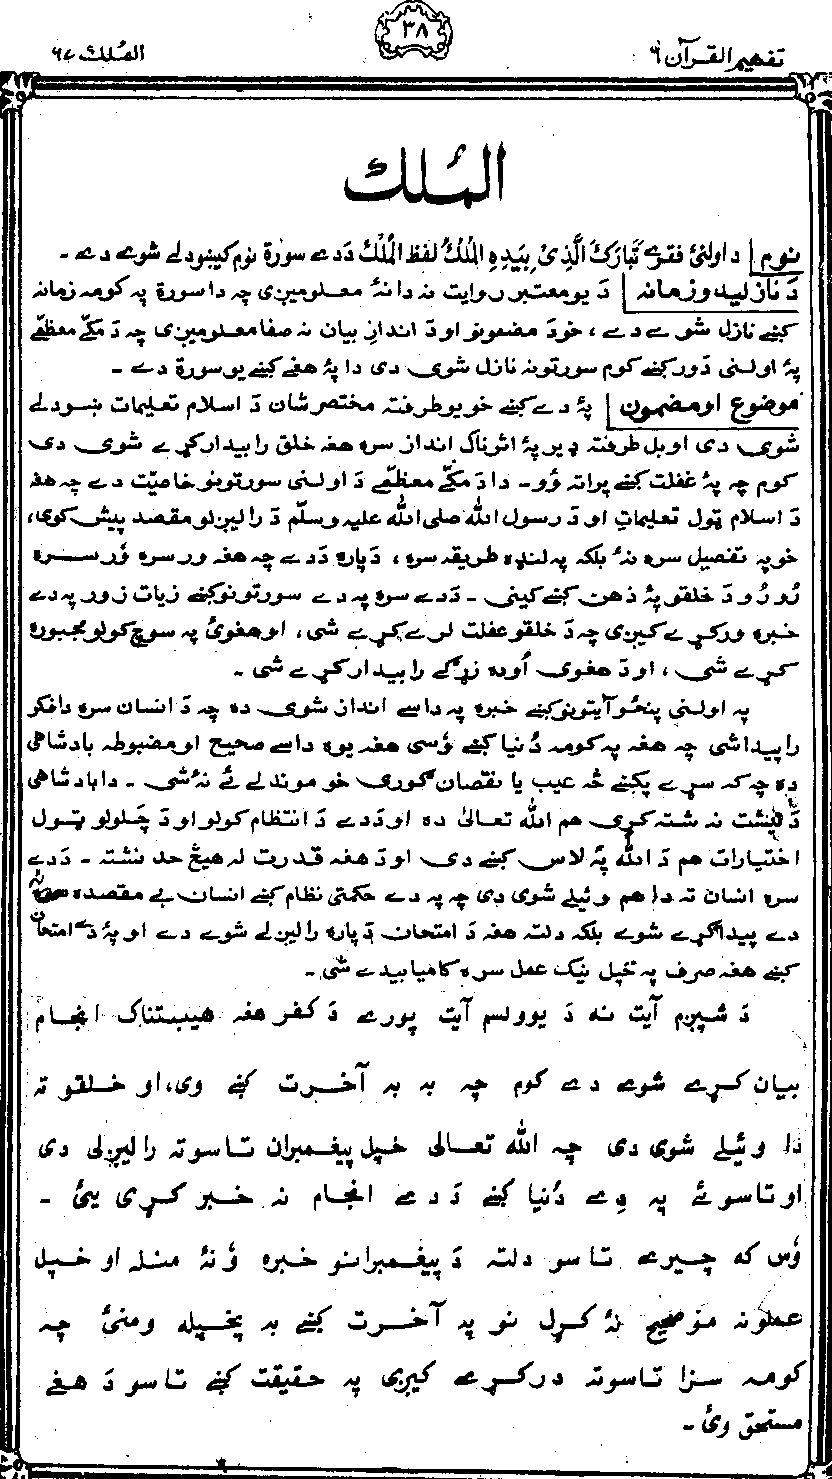 تفهيم القرآن ٦
٣٨
الملك ٦٧
المُلك
نوم | د اولنئ فقرے تَبَارَكَ الَّذِىْ بِيَدِهِ الْمُلْكُ لفظ الْمُلْكُ دَدے سورة نوم كيښودلے شوے دے ۔
دَ نازليدو زمانه | دَ يو معتبر روايت نه دا نۀ معلوميږى چه دا سورة په كومه زمانه
كښے نازل شوے دے ، خو دَ مضمونو او دَ اندازِ بيان نه صفا معلوميږى چه دَ مكّے معظمّے
پۀ اولنى دَور كښے كوم سورتونه نازل شوى دى دا پۀ هغے كښے يو سورة دے ۔
موضوع او مضمون | پۀ دے كښے خو يو طرفته مختصر شان دَ اسلام تعليمات ښودلے
شوى دى او بل طرفته ډير پۀ اثرناك انداز سره هغه خلق را بيدار كړے شوى دى
كوم چه پۀ غفلت كښے پراتۀ وُو ۔ دا دَ مكّے معظمّے دَ اولنى سورتونو خاصيّت دے چه هغه
دَ اسلام ټول تعليمات او دَ رسول الله صلى الله عليه وسلّم دَ راليږلو مقصد پيش كوى،
خو په تفصيل سره نۀ بلكه په لنډه طريقه سره ، دَ پاره دَدے چه هغه ورسره وَرسره
رُو رُو دَ خلقو پۀ ذهن كښے كينى ۔ دَدے سره په دے سورتونو كښے زيات زور په دے
خبره وركړے كيږى چه دَ خلقو غفلت لرے كړے شى، او هغوئ په سوچ كولو مجبوره
كړے شى ، او دَ هغوى اُوده زړګے را بيدار كړے شى ۔
په اولنى پنځو آيتونو كښے خبره په داسے انداز شوى ده چه دَ انسان سره دا فكر
را پيدا شى چه هغه په كومه دُنيا كښے وَسى هغه يوه داسے صحيح او مضبوطه بادشاهى
ده چه كه سړے پكښے څه عيب يا نقصان ګورى خو موندلے ئے نۀ شى ۔ دا بادشاهى
دَ نيشت نه شته كړى هم الله تعالىٰ ده او دَدے دَ انتظام كولو او دَ چلولو ټول
اختيارات هم دَ الله پۀ لاس كښے دى او دَ هغه قدرت له هيڅ حد نشته ۔ دَدے
سره انسان ته دا هم وئيلے شوى دى چه په دے حكمتى نظام كښے انسان بے مقصده نه
دے پيدا كړے شوے بلكه دلته هغه دَ امتحان دَ پاره راليږلے شوے دے او پۀ دَے امتحان
كښے هغه صرف په خپل نيك عمل سره كاميابيدے شى ۔
دَ شپږم آيت نه دَ يوولسم آيت پورے دَ كفر هغه هيبتناك انجام
بيان كړے شوے دے كوم چه به په آخرت كښے وى، او خلقو ته
دا وئيلے شوى دى چه الله تعالى خپل پيغمبران تاسوته راليږلى دى
او تاسو ئے په دِے دُنيا كښے دَدے انجام نه خبر كړى يئ ۔
وَس كه چيرے تاسو دلته دَ پيغمبرانو خبره وُ نۀ منله او خپل
عملونه مو صحيح نۀ كړل نو په آخرت كښے به پخپله ومنئ چه
كومه سزا تاسوته دركړے كيږى په حقيقت كښے تاسو دَ هغے
مستحق وئ ۔